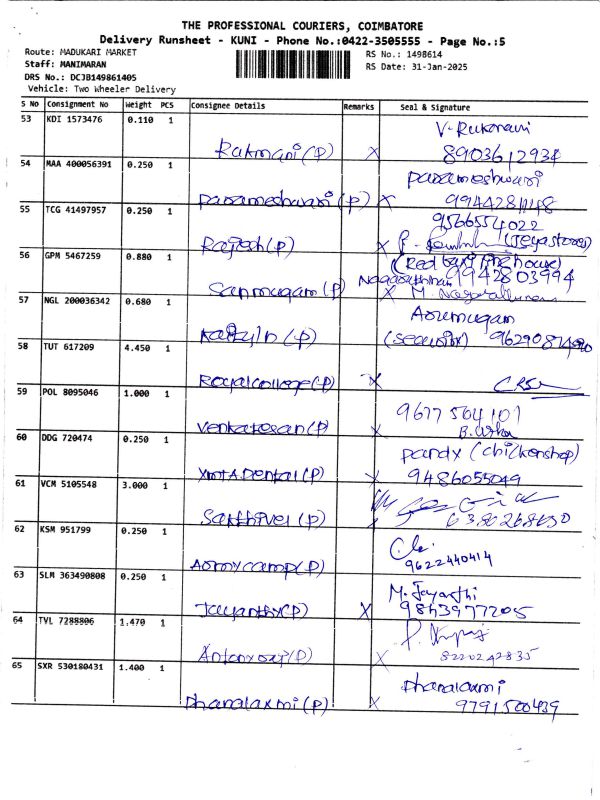 THE PROFESSIONAL COURIERS, COIMBATORE
Delivery Runsheet - KUNI - Phone No.:0422-3505555 - Page No.:5
Route: MADUKARI MARKET
RS No.: 1498614
Staff: MANIMARAN
RS Date: 31-Jan-2025
DRS No.: DCJB149861405
Vehicle: Two Wheeler Delivery
S No Consignment No Weight PCS Consignee Details Remarks Seal & Signature
53 KDI 1573476 0.110 1
V. Rukmani
Rakmani (P) X 8903612934
54 MAA 400056391 0.250 1
parameshwari
parameshwari (P) X
55 TCG 41497957 0.250 1
9566554022
Rajesh (P) X (Jeya stores)
56 GPM 5467259 0.880 1
9942803994
Sanmugam (P) X
57 NGL 200036342 0.680 1
Arumugam
(P) (Security)
58 TUT 617209 4.450 1
Royal college (P) X
59 POL 8095046 1.000 1
9677564101
Venkatesan (P) X
60 DDG 720474 0.250 1
(chickenshop)
Dental (P) X 9486055049
61 VCM 5105548 3.000 1
Sakthivel (P) X
62 KSM 951799 0.250 1
Army camp (P) 9622440414
63 SLM 363490808 0.250 1
M. Jayanthi
Jayanthy (P) X 9843977205
64 TVL 7288806 1.470 1
Antony (P) X 8220242835
65 SXR 530180431 1.400 1
Dhanalaxmi
Dhanalaxmi (P) X 9791500439